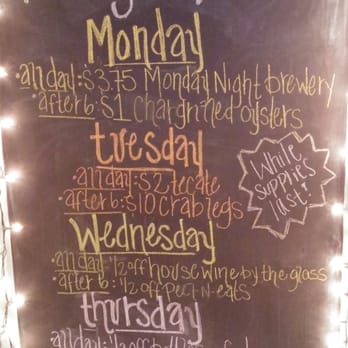 Monday
• all day: $3.75 Monday Night brewery
• after 6: $1 chargrilled oysters
tuesday
• all day: $2 tecate
• after 6: $10 crab legs
While
supplies
last!
Wednesday
• all day: 1/2 off house wine by the glass
• after 6: 1/2 off peel-n-eats
thursday
all day: 1/2 off